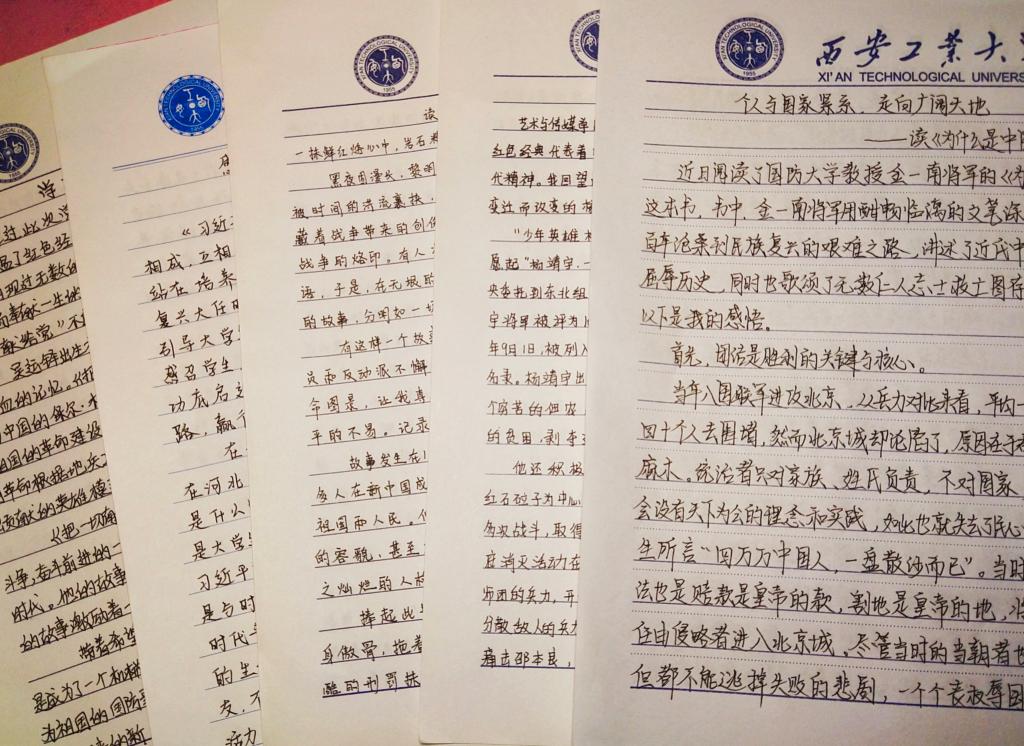 西安工业大
XI'AN TECHNOLOGICAL UNIVERS
个人与国家紧系，走向广阔天地
——读《为什么是中国
近日阅读了国防大学教授金一南将军的《为
这本书，书中，金一南将军用酣畅淋漓的文笔
百年沧桑到民族复兴的艰难之路，讲述了近代中
屈辱历史，同时也歌颂了无数仁人志士救亡图存
以下是我的感悟。
首先，团结是胜利的关键与核心。
当年八国联军进攻北京，从兵力对比来看，平均一
四十个人去围堵，然而北京城却沦陷了，原因在于
麻木。统治者只对家族、姓氏负责，不对国家
会没有天下为公的理念和实践，如此也就失去了民心
生所言“四万万中国人，一盘散沙而已”。当时
法也是赔款是皇帝的款，割地是皇帝的地，
任由侵略者进入北京城，尽管当时的当朝者也
但都不能逃掉失败的悲剧，一个个丧权辱国
艺术与传媒学
红色经典代表着
代精神。我回望
变迁而改变的
“少年英雄
愿起”杨靖宇，一
央委托到东北组
宇将军被评为
年9月1日，被列入
名录。杨靖宇出
个穷苦的佃农
的贫困，剥
他还积极
红石砬子为中心
多次战斗，取得
府消灭活动在
师团的兵力，开
分散敌人的兵力
痛击邵本良，
读
一抹鲜红烙心中，岩石
黑夜固漫长，黎明
被时间的洪流裹挟，
藏着战争带来的创伤
战争的烙印。有人
语，于是，在无垠的
的故事，分明如一
有这样一个故事
反而反动派不懈
命图景，让我
平的不易。记录
故事发生在
多人在新中国成
祖国而人民。
的容貌，甚至
之灿烂的人
捧起战
身傲骨，拖着
酷的刑罚
《习近平
相成，互相
站在培养
复兴大任的
引导大学
感召学生
功底启
路，赢
在
在河北
是什么
是大学
习近平
是与时
时代
的生
友，不
活力
学
过此次学
温了红色经
献给党”不
血的记忆。
中国的保尔·
祖国的革命建设
革命根据地兵工
贡献的英雄模
《把一切献
斗争，奋斗前进的一
时代。他的故事
的故事激励着一
带着希望
是成为了一个
为祖国的国防